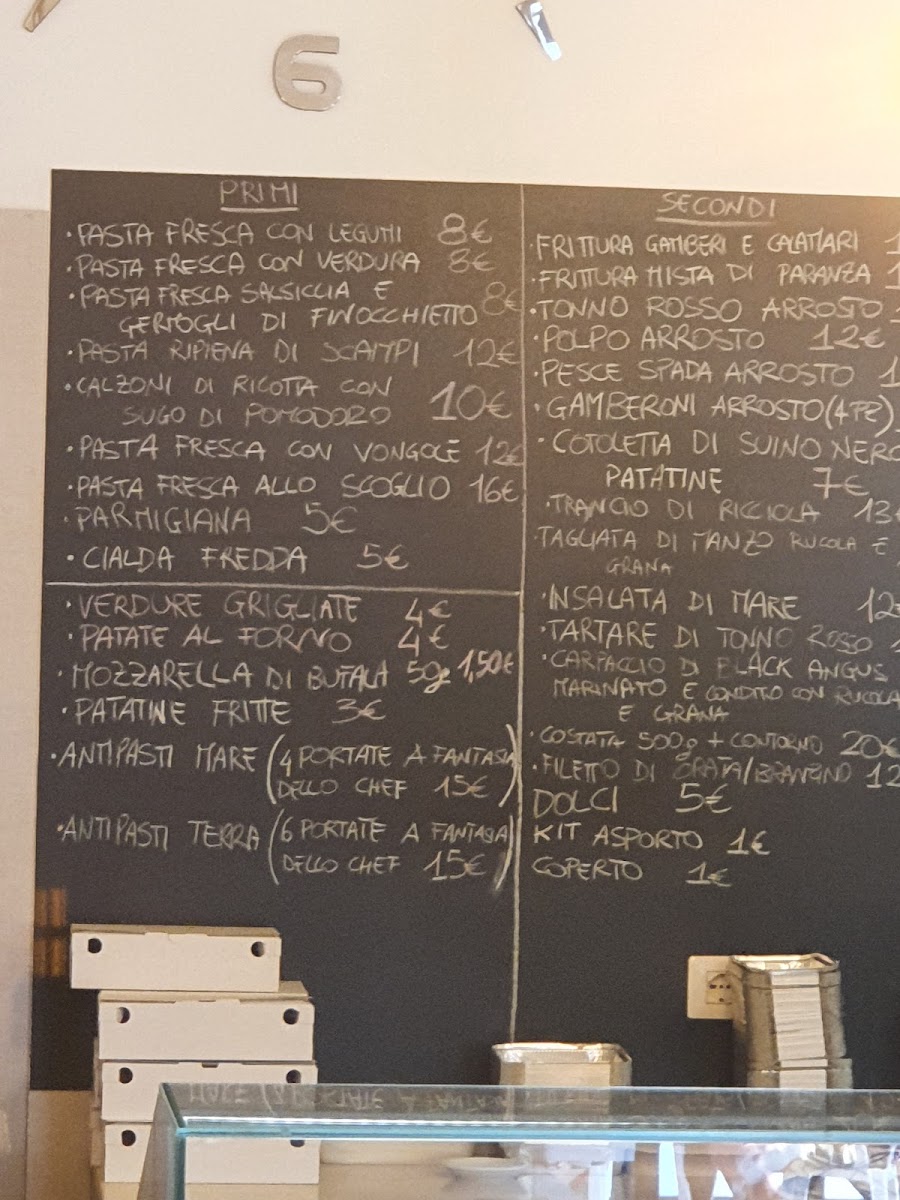 6
PRIMI
• PASTA FRESCA CON LEGUMI 8€
• PASTA FRESCA CON VERDURA 8€
• PASTA FRESCA SALSICCIA E 8€
GERMOGLI DI FINOCCHIETTO
• PASTA RIPIENA DI SCAMPI 12€
• CALZONI DI RICOTTA CON
SUGO DI POMODORO 10€
• PASTA FRESCA CON VONGOLE 12€
• PASTA FRESCA ALLO SCOGLIO 16€
• PARMIGIANA 5€
• CIALDA FREDDA 5€
• VERDURE GRIGLIATE 4€
• PATATE AL FORNO 4€
• MOZZARELLA DI BUFALA 50g 1,50€
• PATATINE FRITTE 3€
• ANTIPASTI MARE (4 PORTATE A FANTASIA
DELLO CHEF 15€)
• ANTIPASTI TERRA (6 PORTATE A FANTASIA
DELLO CHEF 15€)
SECONDI
• FRITTURA GAMBERI E CALAMARI
• FRITTURA MISTA DI PARANZA
• TONNO ROSSO ARROSTO
• POLPO ARROSTO 12€
• PESCE SPADA ARROSTO
• GAMBERONI ARROSTO (4 PZ)
• COTOLETTA DI SUINO NERO
PATATINE 7€
• TRANCIO DI RICCIOLA 13€
• TAGLIATA DI MANZO RUCOLA E
GRANA
• INSALATA DI MARE 12€
• TARTARE DI TONNO ROSSO
• CARPACCIO DI BLACK ANGUS
MARINATO E CONDITO CON RUCOLA
E GRANA
• COSTATA 500g + CONTORNO 20€
• FILETTO DI ORATA/BRANZINO 12
DOLCI 5€
KIT ASPORTO 1€
COPERTO 1€